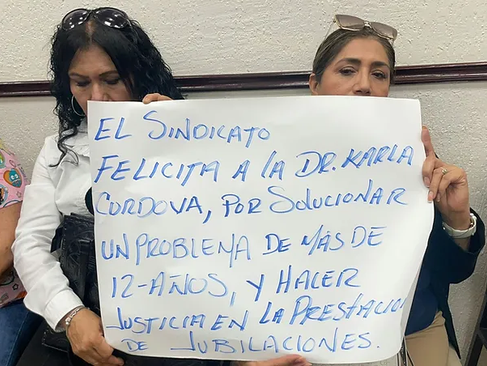 EL SINDICATO
FELICITA A LA DR. KARLA
CORDOVA, POR SOLUCIONAR
UN PROBLEMA DE MÁS DE
12-AÑOS, Y HACER
JUSTICIA EN LA PRESTACION
DE JUBILACIONES.